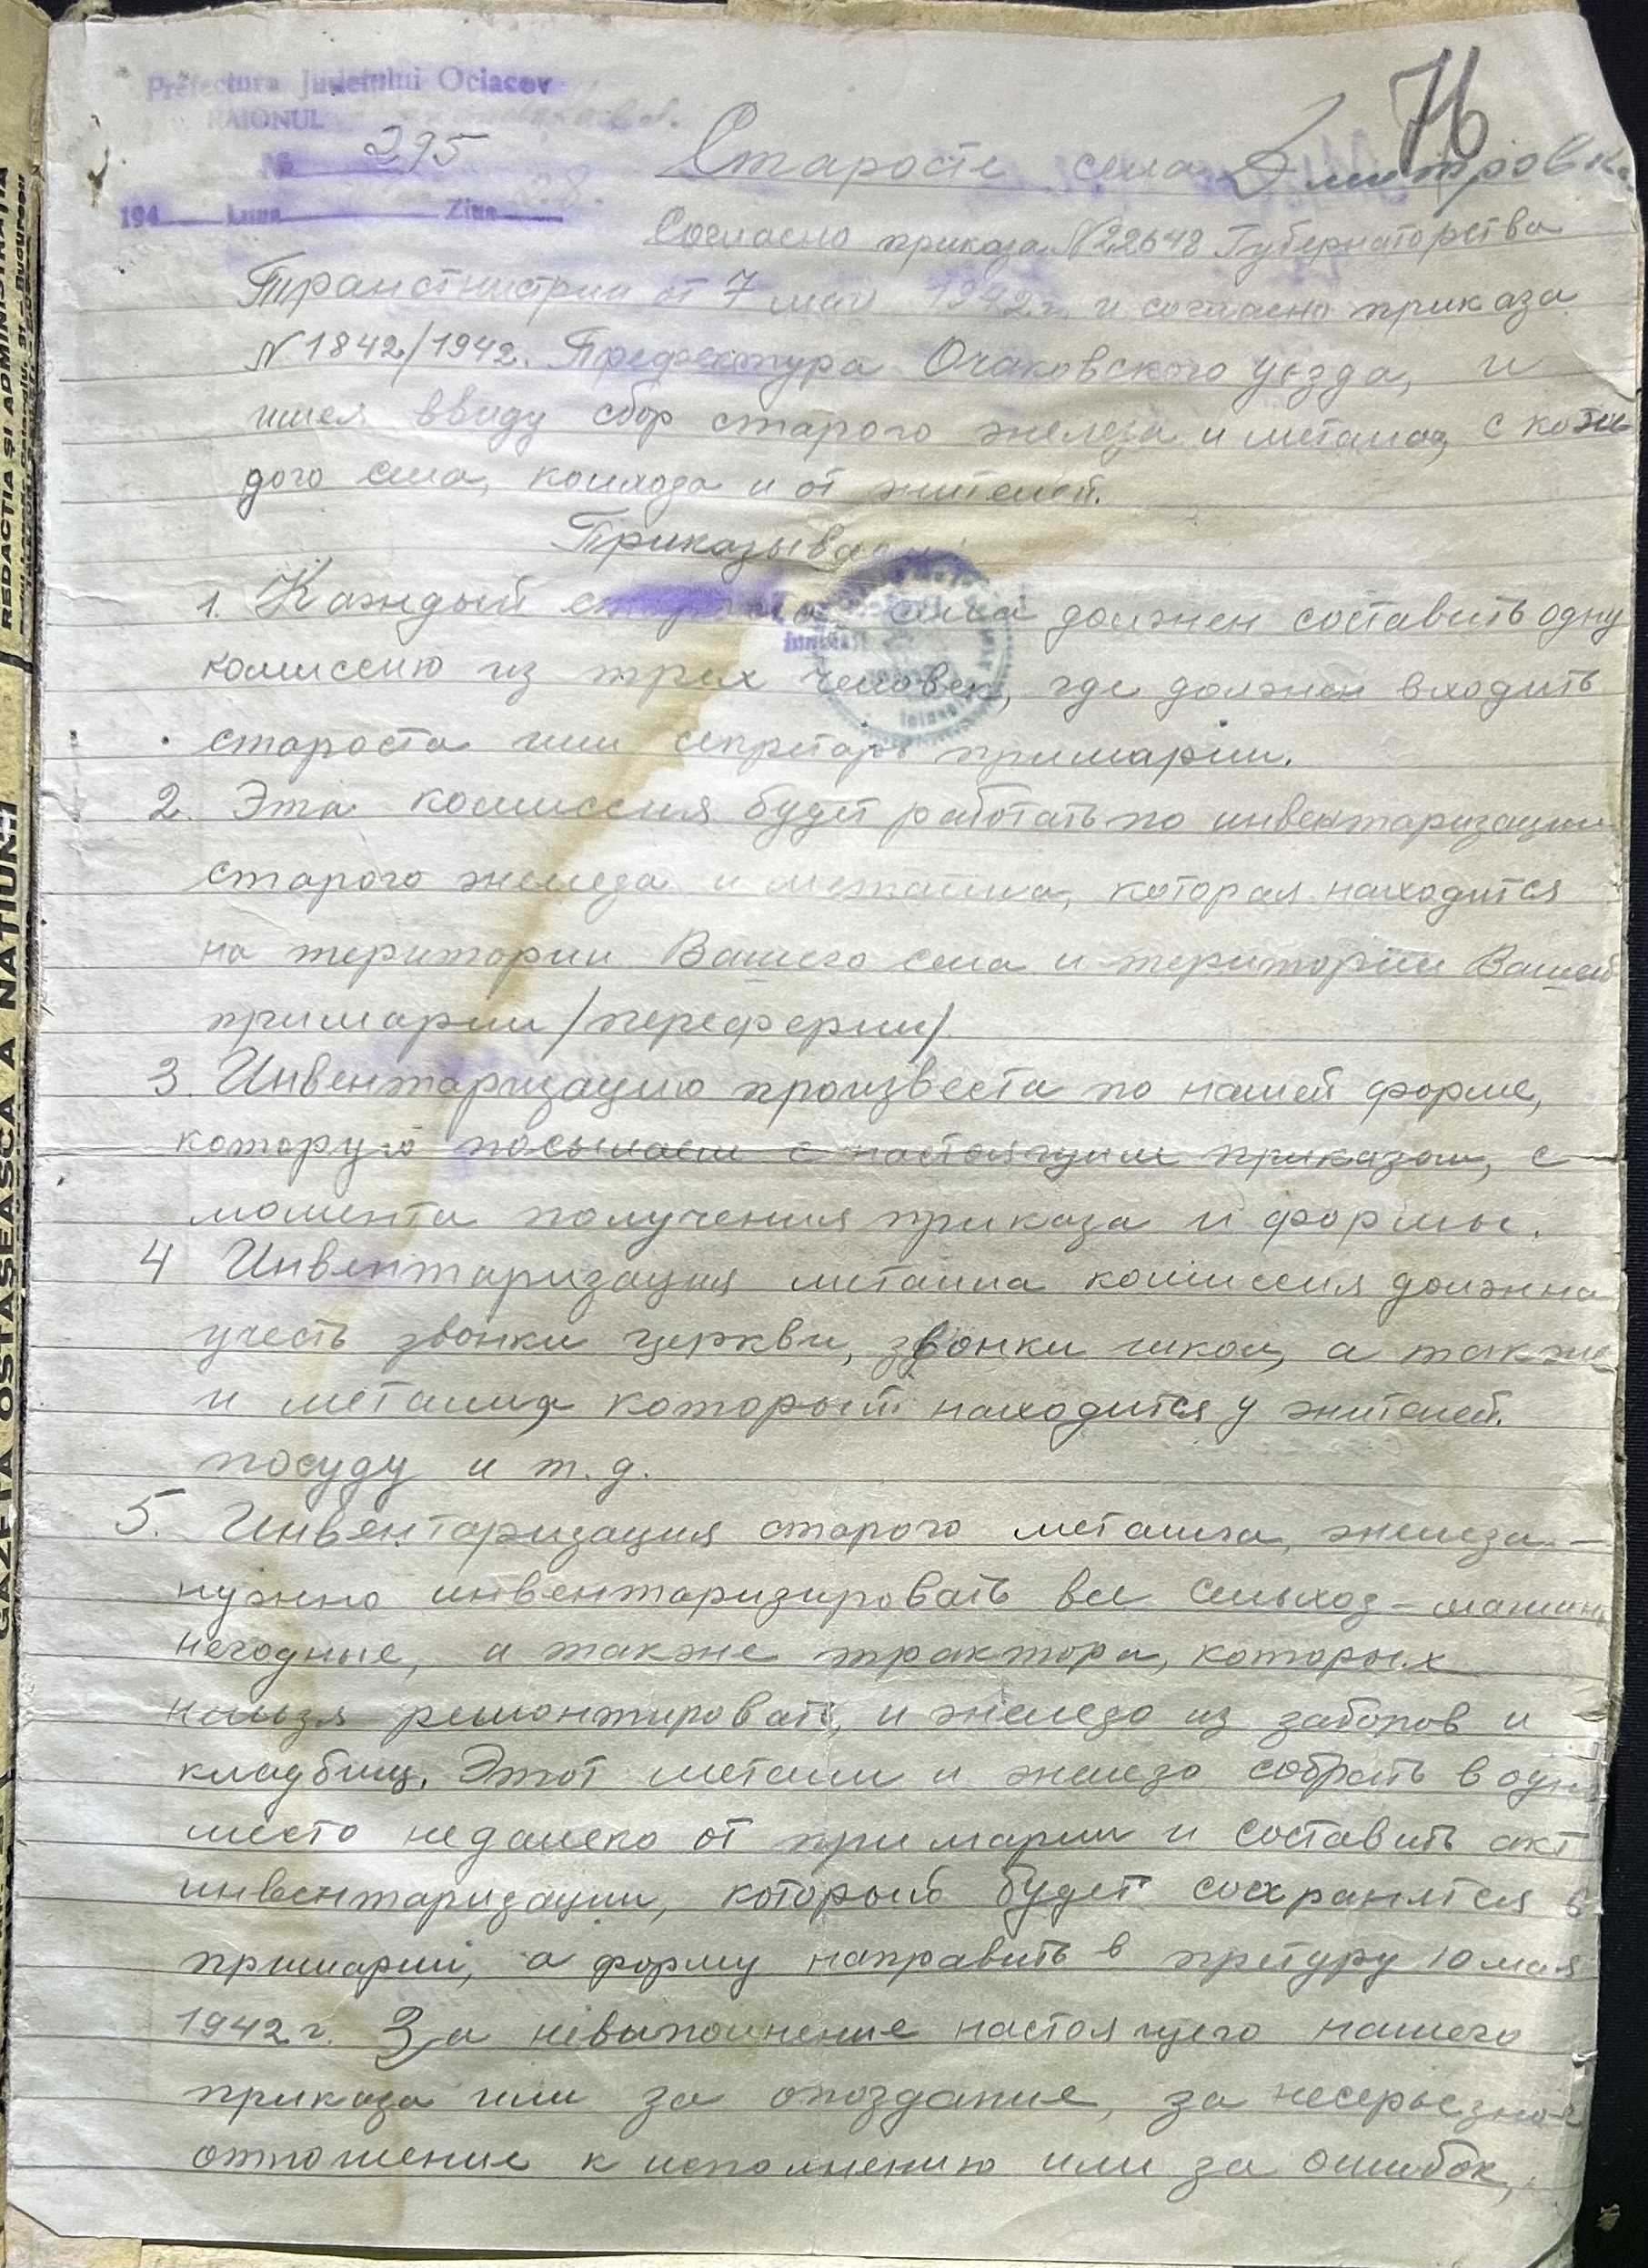 76
Prefectura Judetului Ociacov
RAIONUL
№ 295
194 Luna Ziua 28.
Старосте села Дмитровки
Согласно приказа №22648 Губернаторства
Транстнистрии от 7 мая 1942 г. и согласно приказа
№1842/1942. Префектура Очаковского уезда, и
имея ввиду сбор старого железа и метала, с каж
дого села, колхоза и от жителей.
Приказываем
1. Каждый староста села должен составить одну
комиссию из трех человек, где должен входить
староста или секретарь примарии.
2. Эта комиссия будет работать по инвентаризации
старого железа и металла, которая находится
на територии Вашего села и територии Вашей
примарии /переферии/.
3. Инвентаризацию произвести по нашей форме,
которую посылаем с настоящим приказом, с
момента получения приказа и формы.
4 Инвентаризация металла комиссия должна
учесть звонки церкви, звонки школ, а также
и металла который находится у жителей.
посуду и т. д.
5. Инвентаризация старого металла, железа –
нужно инвентаризировать все сельхоз-машины
негодные, а также трактора, которых
нельзя ремонтировать, и железо из заборов и
кладбищ. Этот металл и железо собрать в одно
место недалеко от примарии и составить акт
инвентаризации, который будет сохранятся в
примарии, а форму направить в претуру 10 мая
1942 г. За невыполнение настоящего нашего
приказа или за опоздание, за несерьезное
отношение к исполнению или за ошибок,
REDACTIA ȘI ADMINISTRAȚIA
GAZETA OSTĂȘEASCĂ A NAȚIUNII